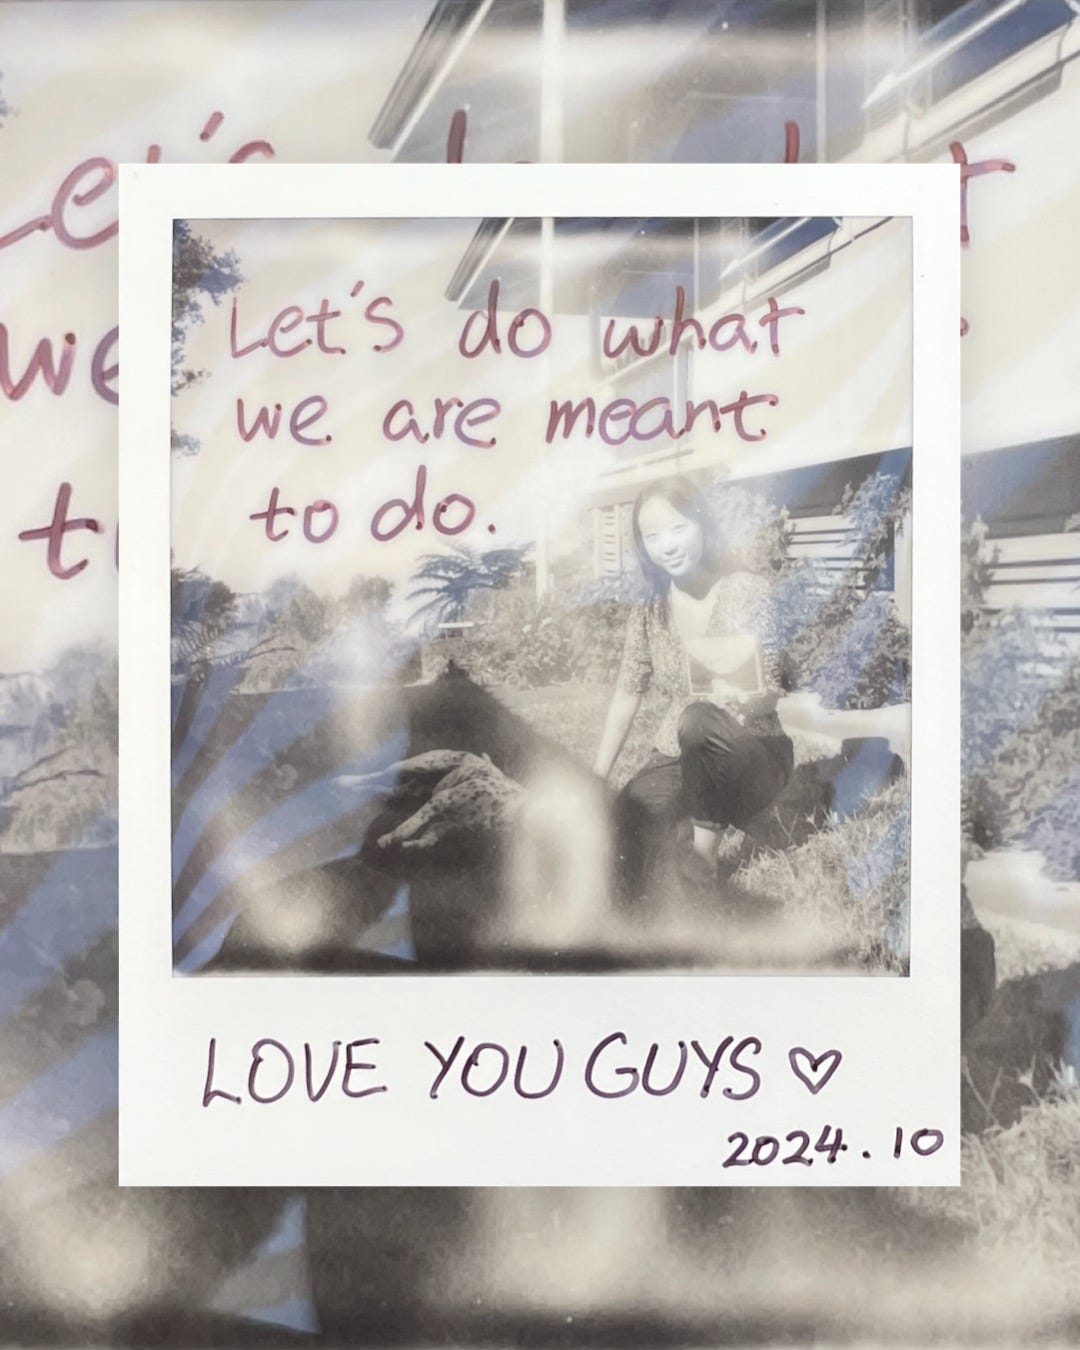 Let's do what
we are meant
to do.
LOVE YOU GUYS ♡
2024.10